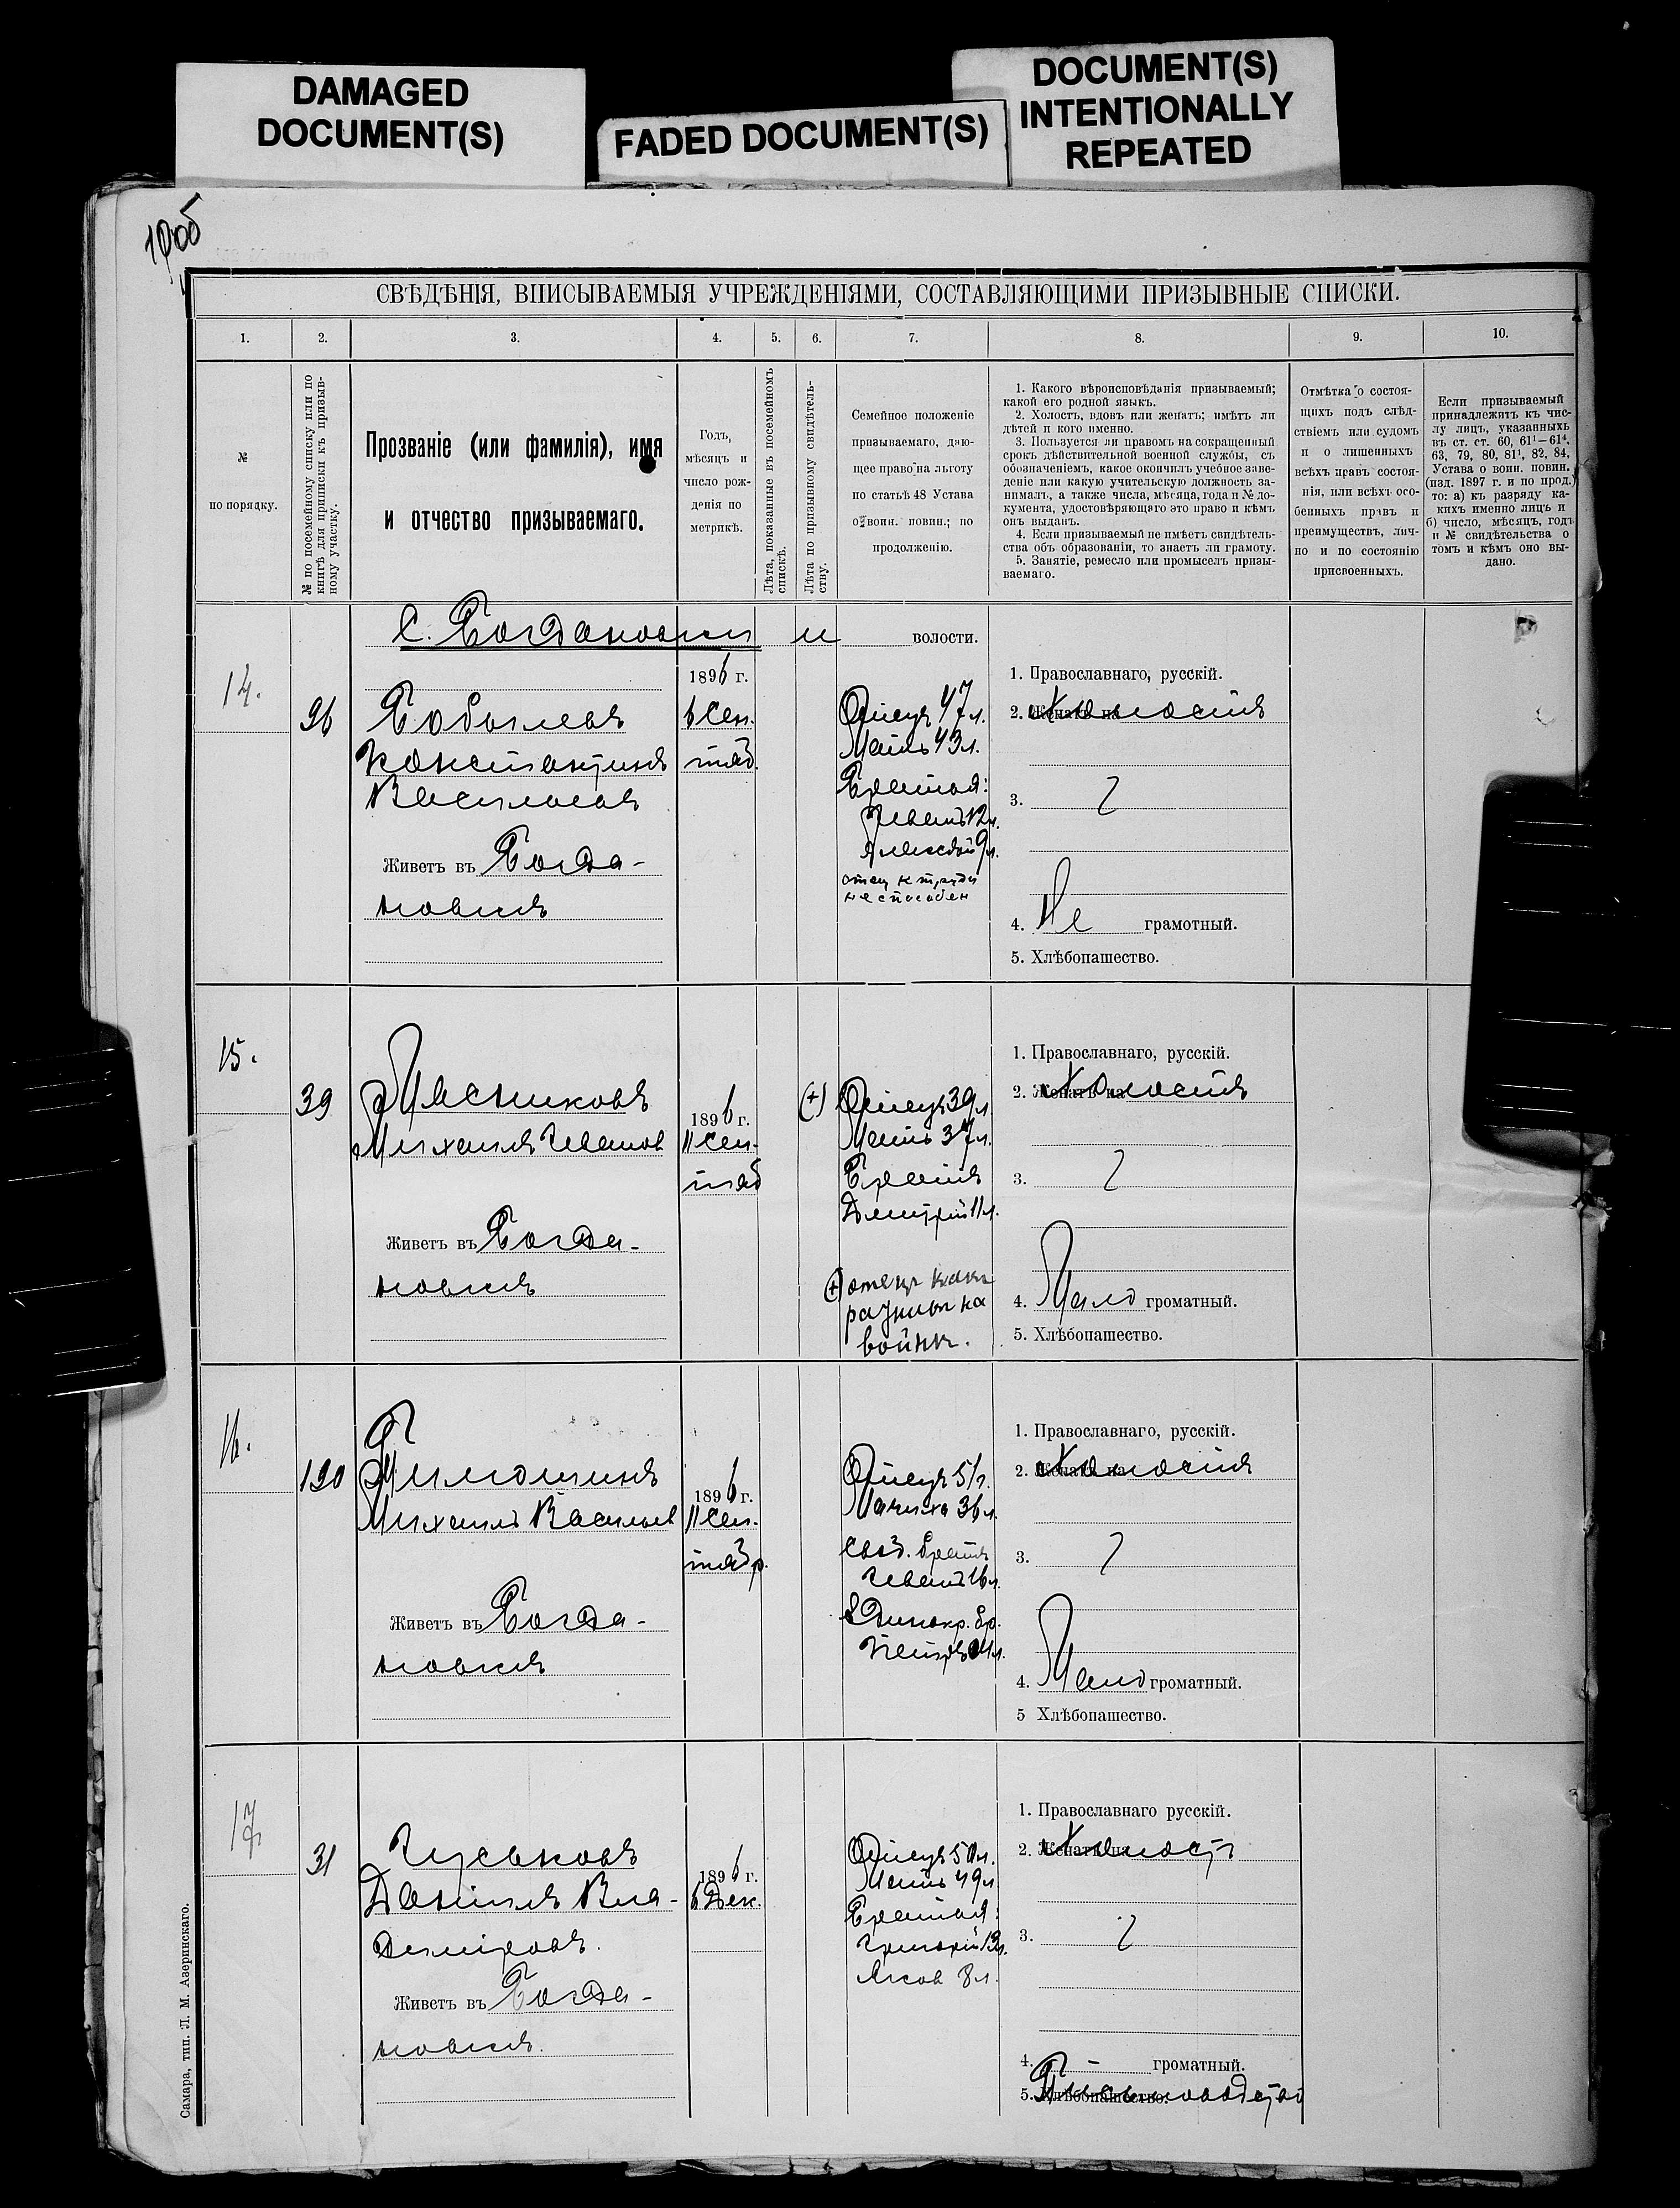 DAMAGED
DOCUMENT(S)
FADED DOCUMENT(S)
DOCUMENT(S)
INTENTIONALLY
REPEATED
10об
СВѢДѢНІЯ, ВПИСЫВАЕМЫЯ УЧРЕЖДЕНІЯМИ, СОСТАВЛЯЮЩИМИ ПРИЗЫВНЫЕ СПИСКИ.
1. 2. 3. 4. 5. 6. 7. 8. 9. 10.
№
по порядку.
№ по посемейному списку или по
книгѣ для приписки къ призыв-
ному участку.
Прозваніе (или фамилія), имя
и отчество призываемаго.
Годъ,
мѣсяцъ и
число рож-
денія по
метрикѣ.
Лѣта, показанные въ посемейномъ
спискѣ.
Лѣта по призывному свидѣтель-
ству.
Семейное положеніе
призываемаго, даю-
щее право на льготу
по статьѣ 48 Устава
о воин. повин.; по
продолженію.
1. Какого вѣроисповѣданія призываемый;
какой его родной языкъ.
2. Холостъ, вдовъ или женатъ; имѣтъ ли
дѣтей и кого именно.
3. Пользуется ли правомъ на сокращенный
срокъ дѣйствительной военной службы, съ
обозначеніемъ, какое окончилъ учебное заве-
деніе или какую учительскую должность за-
нималъ, а также числа, мѣсяца, года и № до-
кумента, удостовѣряющаго это право и кѣмъ
онъ выданъ.
4. Если призываемый не имѣетъ свидѣтель-
ства объ образованіи, то знаетъ ли грамоту.
5. Занятіе, ремесло или промыселъ призы-
ваемаго.
Отмѣтка о состоя-
щихъ подъ слѣд-
ствіемъ или судомъ
и о лишенныхъ
всѣхъ правъ состоя-
нія, или всѣхъ осо-
бенныхъ правъ и
преимуществъ, лич-
но и по состоянію
присвоенныхъ.
Если призываемый
принадлежитъ къ чис-
лу лицъ, указанныхъ
въ ст. ст. 60, 61¹—61⁴,
63, 79, 80, 81¹, 82, 84,
Устава о воин. повин.
(изд. 1897 г. и по прод.)
то: а) къ разряду ка-
кихъ именно лицъ и
б) число, мѣсяцъ, годъ
и № свидѣтельства о
томъ и кѣмъ оно вы-
дано.
С. Богдановки и волости.
14.
96
Бобылевъ
Константинъ
Васильевъ
Живетъ въ Богда-
новкѣ
1896 г.
6 Сен.
тяб.
Отецъ 47 л.
Мать 43 л.
Братья:
Иванъ 12 л.
Алексѣй 9 л.
отец к труду
не способен
1. Православнаго, русскій.
2. Женатъ на Холостъ
3.
4. Не грамотный.
5. Хлѣбопашество.
15.
39
Мясниковъ
Михаилъ Иванов
Живетъ въ Богда-
новкѣ
1896 г.
11 Сен-
тяб
(+)
Отецъ 39 л.
Мать 37 л.
Братъ
Дмитрій 11 л.
(+) отецъ
на
войнѣ.
1. Православнаго, русскій.
2. Женатъ на Холостъ
3.
4. Мало громатный.
5. Хлѣбопашество.
16.
120
Михаилъ Васильев
Живетъ въ Богда-
новкѣ
1896 г.
11 Сен-
тябр.
Отецъ 51 г.
Мачиха 36 л.
Свод. братъ
Иванъ 16 л.
Единокр. бр.
Петръ
1. Православнаго, русскій.
2. Женатъ на Холостъ
3.
4. Мало громатный.
5 Хлѣбопашество.
17
31
Гуськовъ
Даніилъ Вла-
диміровъ.
Живетъ въ Богда-
новкѣ.
1896 г.
6 Дек.
Отецъ 50 л.
Мать 49 л.
Братья:
Григорій 13 л.
Яков 8 л.
1. Православнаго русскій.
2. Женатъ на Холост
3.
4. – громатный.
5. Хлѣбопашество.
Самара, тип. Л. М. Азеринскаго.